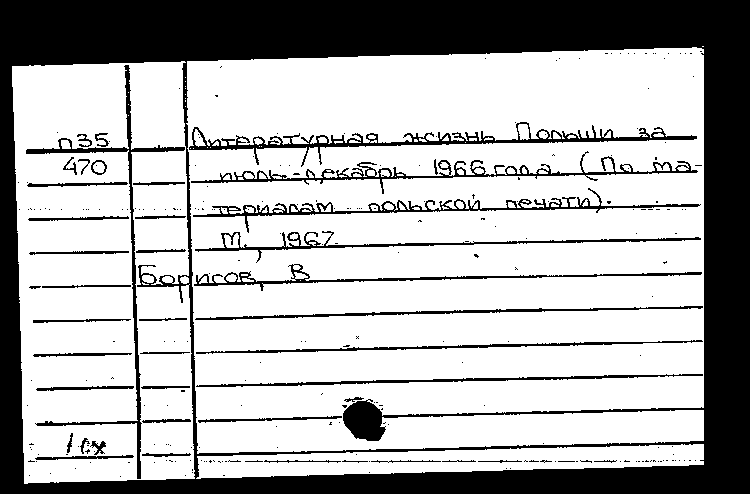 п35 Литературная жизнь Польши за
470 июль-декабрь 1966 года. (По ма-
териалам польской печати).
М., 1967.
Борисов, В